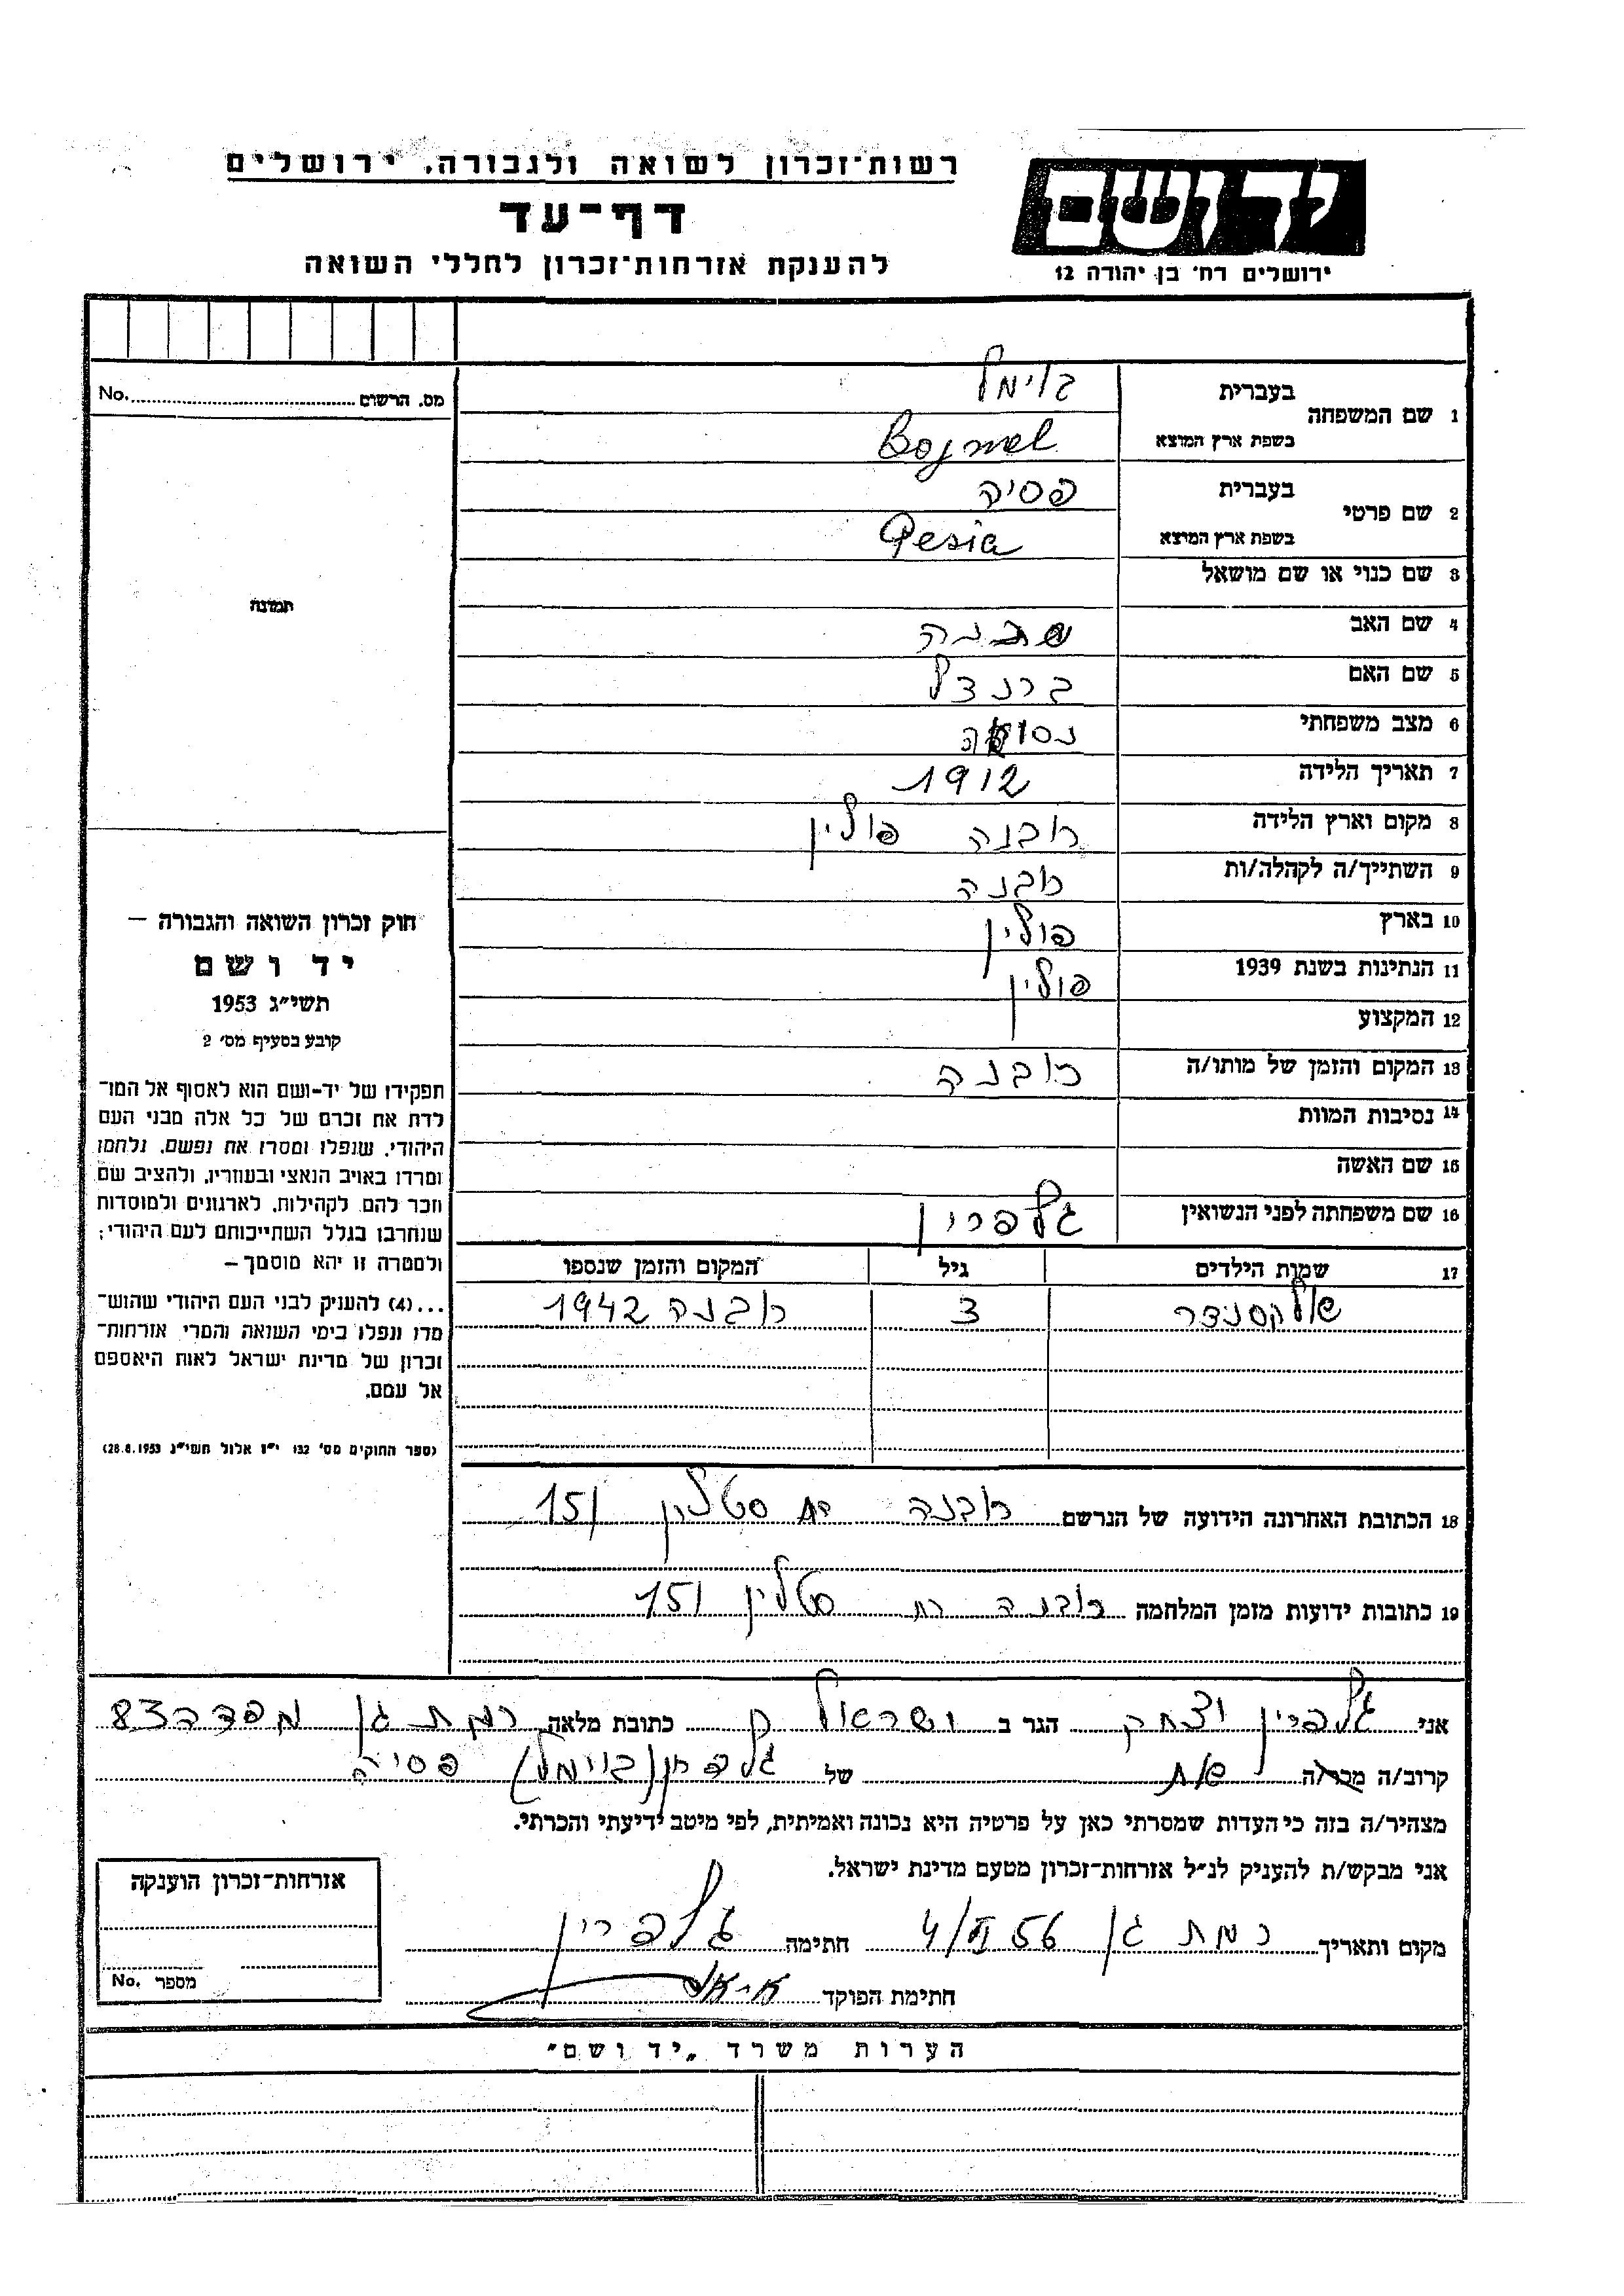 רשות-זכרון לשואה ולגבורה, ירושלים
דף-עד
להענקת אזרחות-זכרון לחללי השואה
יד ושם
ירושלים רח' בן יהודה 12
מס. הרשום No.
1 שם המשפחה בעברית בוימל
בשפת ארץ המוצא Bojmel
2 שם פרטי בעברית פסיה
בשפת ארץ המוצא Pesia
3 שם כנוי או שם מושאל
תמונה
4 שם האב
5 שם האם ברנדל
6 מצב משפחתי נסואה
7 תאריך הלידה 1912
8 מקום וארץ הלידה רובנה פולין
9 השתייך/ה לקהלה/ות רובנה
10 בארץ פולין
11 הנתינות בשנת 1939 פולין
12 המקצוע
13 המקום והזמן של מותו/ה רובנה
14 נסיבות המוות
15 שם האשה
16 שם משפחתה לפני הנשואין גלפרין
17 שמות הילדים גיל המקום והזמן שנספו
אלכסנדר 3 רובנה 1942
חוק זכרון השואה והגבורה –
יד ושם
תשי"ג 1953
קובע בסעיף מס' 2
תפקידו של יד-ושם הוא לאסוף אל המו-
לדת את זכרם של כל אלה מבני העם
היהודי, שנפלו ומסרו את נפשם, נלחמו
ומרדו באויב הנאצי ובעוזריו, ולהציב שם
וזכר להם לקהילות, לארגונים ולמוסדות
שנחרבו בגלל השתייכותם לעם היהודי;
ולמטרה זו יהא מוסמך –
...(4) להעניק לבני העם היהודי שהוש-
מדו ונפלו בימי השואה והמרי אזרחות-
זכרון של מדינת ישראל לאות היאספם
אל עמם.
(ספר החוקים מס' 132 י"ז אלול תשי"ג 28.8.1953)
18 הכתובת האחרונה הידועה של הנרשם רובנה רח סטלין 151
19 כתובות ידועות מזמן המלחמה רובנה רח סטלין 151
אני גלפרין יצחק הגר ב ישראל כתובת מלאה רמת גן 83
קרוב/ה מכר/ה של גלפרין (בוימל) פסיה
מצהיר/ה בזה כי העדות שמסרתי כאן על פרטיה היא נכונה ואמיתית, לפי מיטב ידיעתי והכרתי.
אני מבקש/ת להעניק לנ"ל אזרחות-זכרון מטעם מדינת ישראל.
מקום ותאריך רמת גן 4/VI 56 חתימה גלפרין
חתימת הפוקד
אזרחות-זכרון הוענקה
מספר No.
הערות משרד „יד ושם"